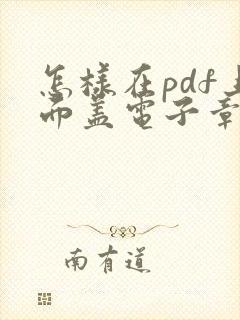 怎樣在pdf上
面盖電子章
南有道